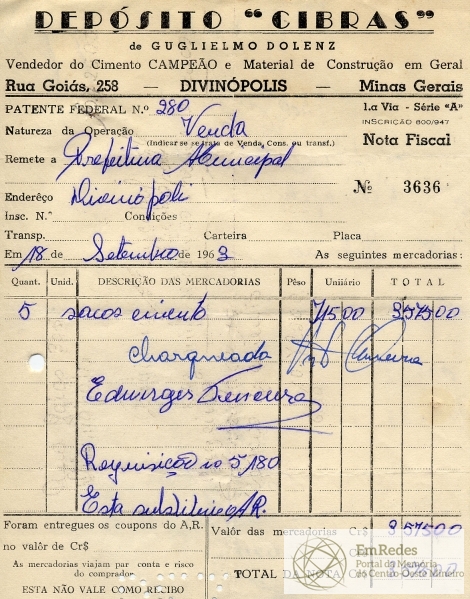 DEPÓSITO "CIBRAS"
de GUGLIELMO DOLENZ
Vendedor do Cimento CAMPEÃO e Material de Construção em Geral
Rua Goiás, 258 — DIVINÓPOLIS — Minas Gerais
PATENTE FEDERAL N.º 280
1.a Via - Série "A"
INSCRIÇÃO 800/947
Natureza da Operação Venda
(Indicar se se trata de Venda, Cons. ou transf.)
Nota Fiscal
Remete a Prefeitura Municipal
Nº 3636
Endereço Divinópolis
Insc. N.º Condições
Transp. Carteira Placa
Em 18 de Setembro de 1963 As seguintes mercadorias:
Quant. Unid. DESCRIÇÃO DAS MERCADORIAS Pêso Unitário TOTAL
5 sacos cimento 71500 357500
Charqueada
Requisição no 5180
Esta substitue o A.R.
Foram entregues os coupons do A,R.
no valôr de Cr$
Valor das mercadorias Cr$ 357500
As mercadorias viajam por conta e risco
do comprador
TOTAL DA NOTA
ESTA NÃO VALE COMO RECIBO
EmRedes
Portal da Memória
do Centro-Oeste Mineiro